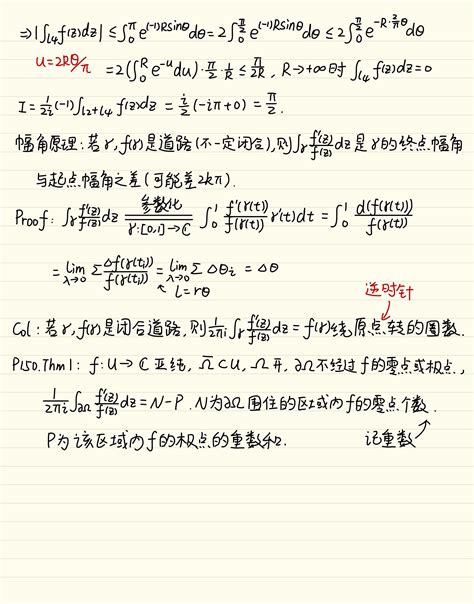 ⇒|∫_{L4} f(z)dz| ≤ ∫_0^π e^{(-1)R sinθ} dθ = 2∫_0^{π/2} e^{(-1)R sinθ} dθ ≤ 2∫_0^{π/2} e^{-R·(2/π)θ} dθ
u=2Rθ/π =2(∫_0^R e^{-u}du)·π/2·1/R ≤ π/2R, R→+∞时 ∫_{L4} f(z)dz=0
I = 1/2i (-1)∫_{L2+L4} f(z)dz = i/2 (-iπ+0) = π/2.
幅角原理:若γ,f(γ)是道路(不一定闭合),则∫_γ f'(z)/f(z) dz 是γ的终点幅角
与起点幅角之差(可能差2kπ).
Proof: ∫_γ f'(z)/f(z) dz 参数化 γ:[0,1]→ℂ ∫_0^1 f'(γ(t))/f(γ(t)) γ'(t)dt = ∫_0^1 d(f(γ(t)))/f(γ(t))
= lim_{λ→0} Σ Δf(γ(ti))/f(γ(ti)) = lim_{λ→0} Σ Δθi = Δθ
L=rθ
逆时针
Col:若γ,f(γ)是闭合道路,则 1/2πi ∫_γ f'(z)/f(z) dz = f(γ)绕原点转的圈数.
P150.Thm1: f:U→ℂ 亚纯, Ω̄⊂U, Ω开, ∂Ω不经过f的零点或极点,
1/2πi ∫_{∂Ω} f'(z)/f(z) dz = N-P. N为∂Ω围住的区域内f的零点个数.
P为该区域内f的极点的重数和. 记重数